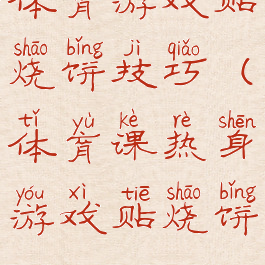 体育游戏贴
shāo bǐng jì qiǎo
烧饼技巧（
tǐ yù kè rè shēn
体育课热身
yóu xì tiē shāo bǐng
游戏贴烧饼